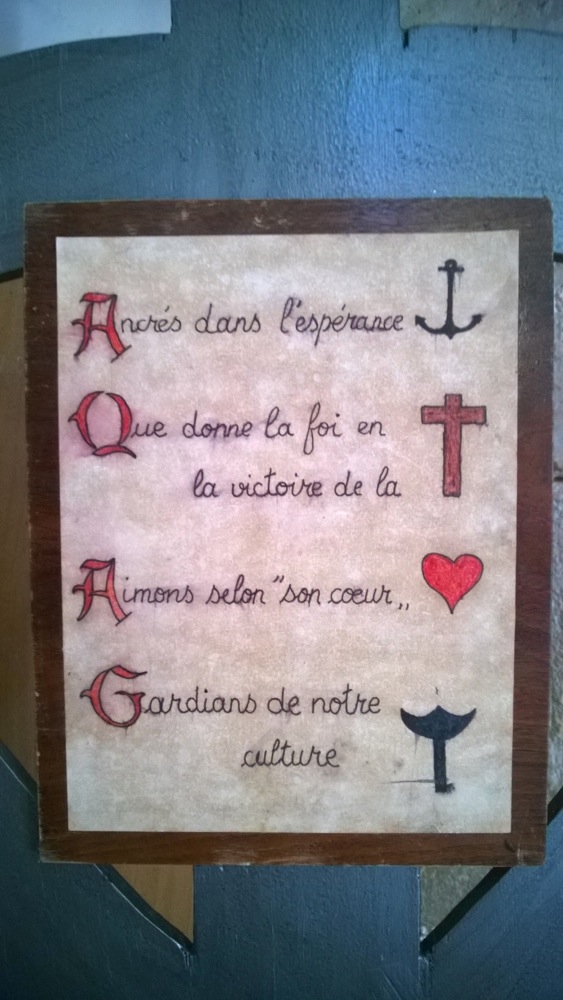 Ancrés dans l'espérance
Que donne la foi en
la victoire de la
Aimons selon "son cœur„
Gardians de notre
culture